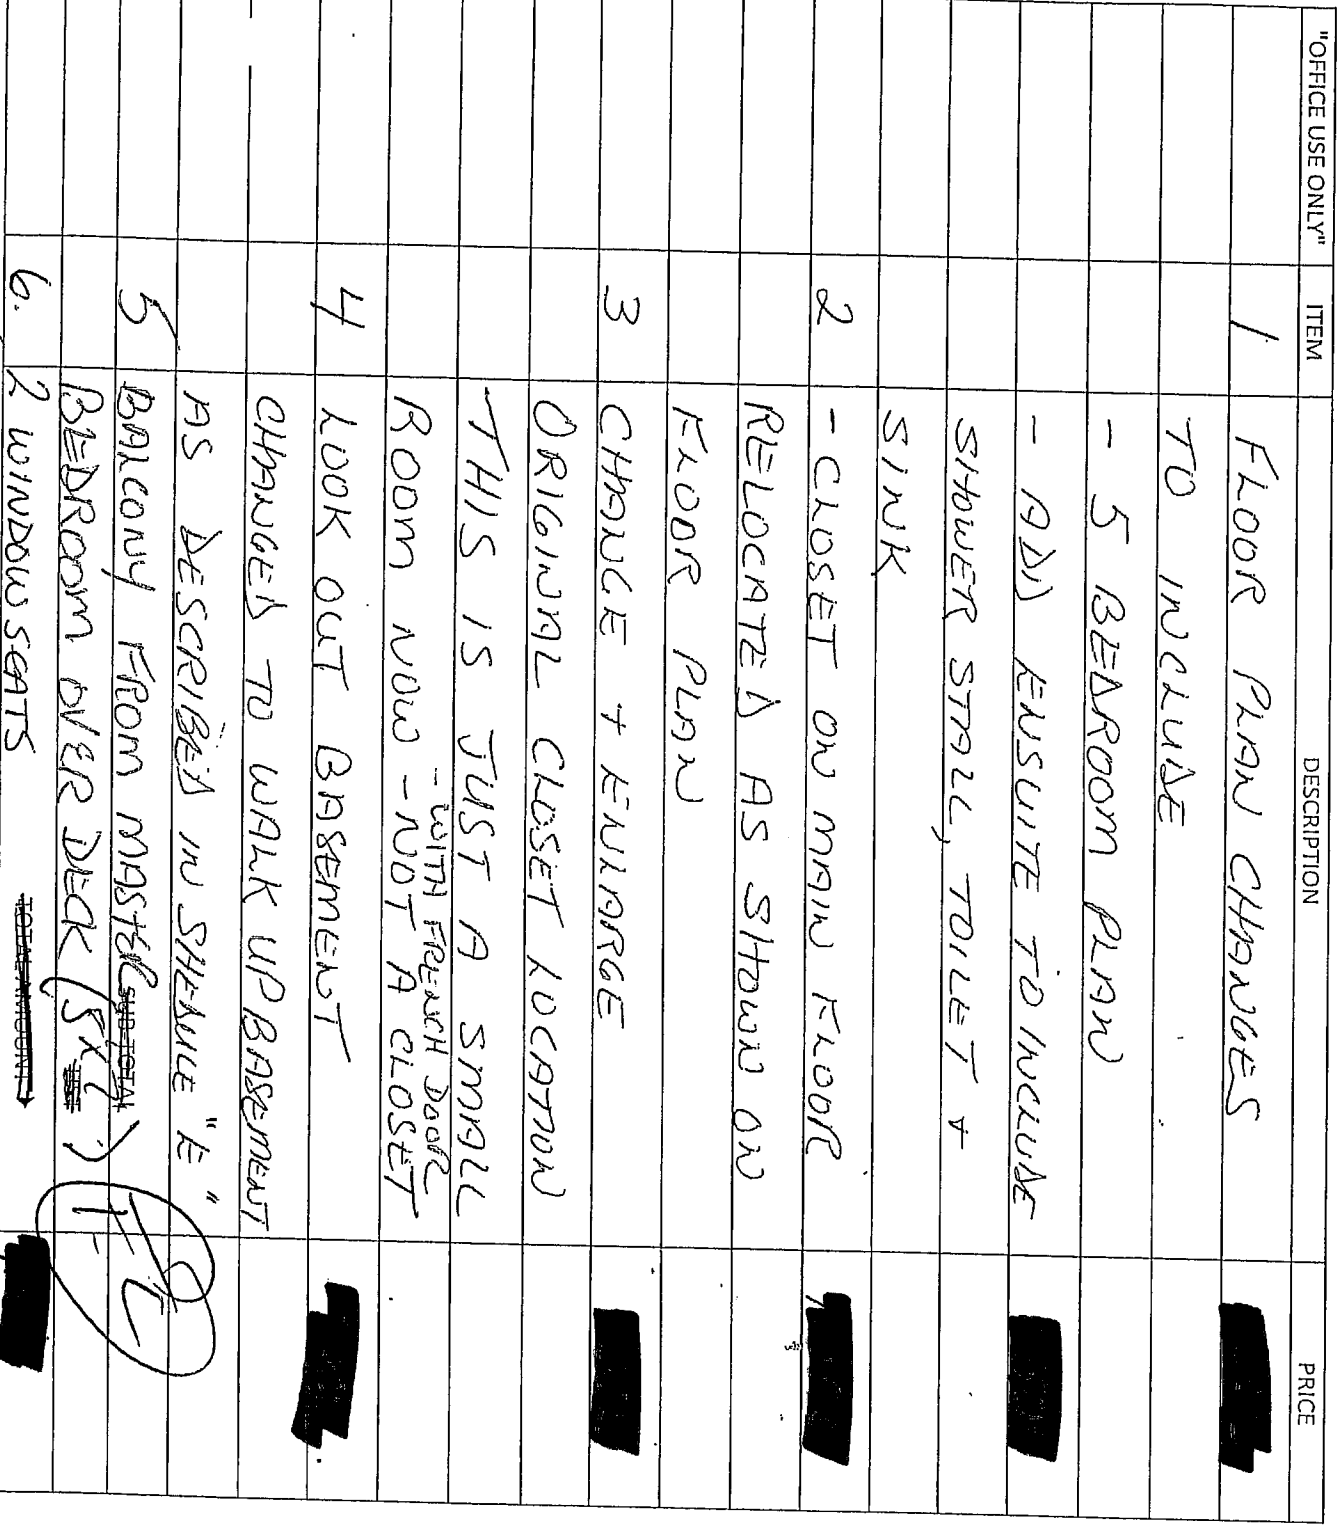 "OFFICE USE ONLY" ITEM DESCRIPTION PRICE
1 FLOOR PLAN CHANGES
TO INCLUDE
- 5 BEDROOM PLAN
- ADD ENSUITE TO INCLUDE
SHOWER STALL, TOILET +
SINK
2 - CLOSET ON MAIN FLOOR
RELOCATED AS SHOWN ON
FLOOR PLAN
3 CHANGE + ENLARGE
ORIGINAL CLOSET LOCATION
THIS IS JUST A SMALL
- WITH FRENCH DOOR
ROOM NOW - NOT A CLOSET
4 LOOK OUT BASEMENT
CHANGED TO WALK UP BASEMENT
AS DESCRIBED IN SHEDULE "E"
5 BALCONY FROM MASTER SUB-TOTAL
BEDROOM OVER DECK (5x7)
6. 2 WINDOW SEATS TOTAL AMOUNT